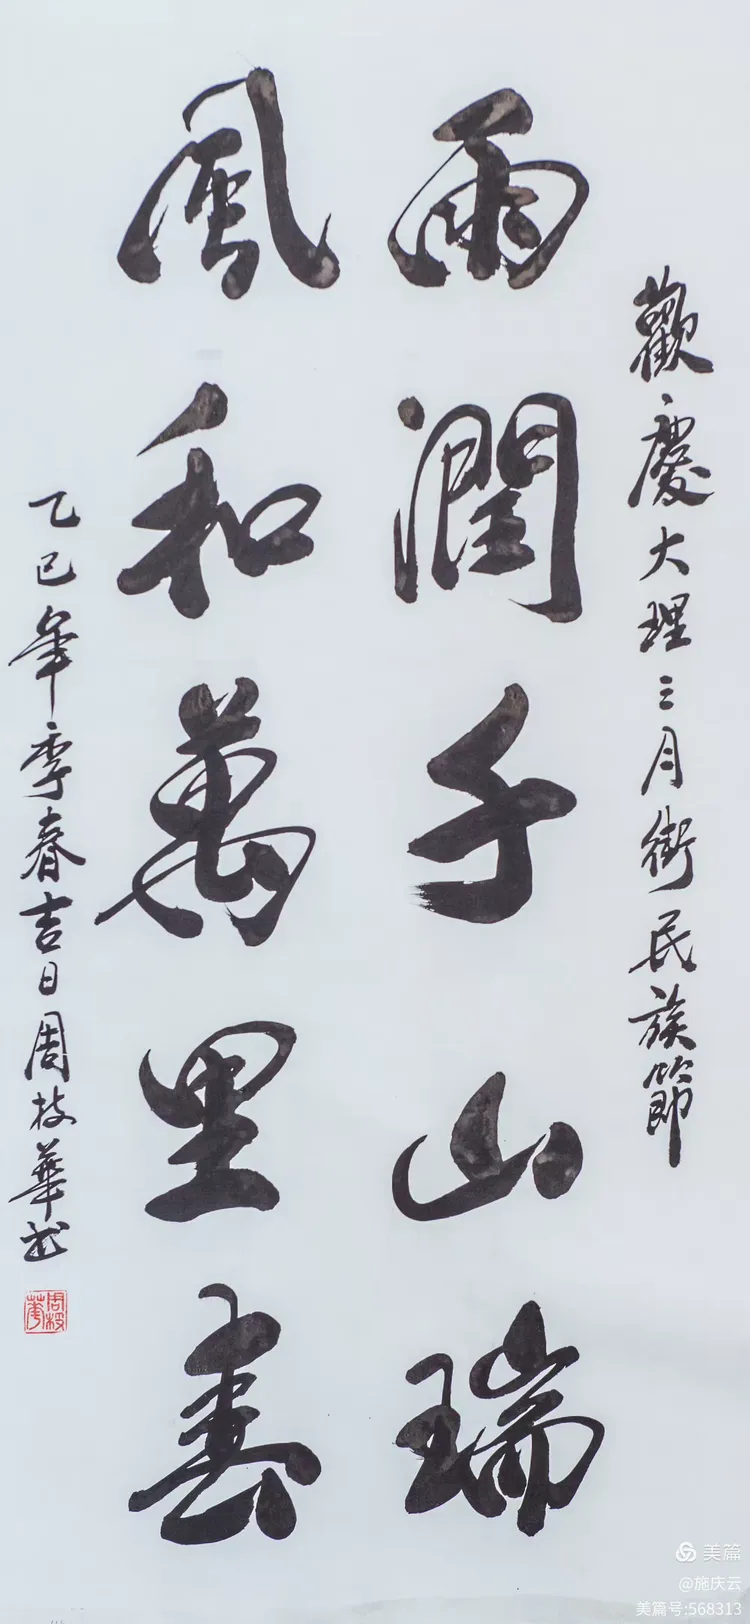 歡慶大理三月街民族節
雨潤千山瑞
風和萬里春
乙巳年季春吉日周枝華书
周枝華
美篇
@施庆云
美篇号:568313